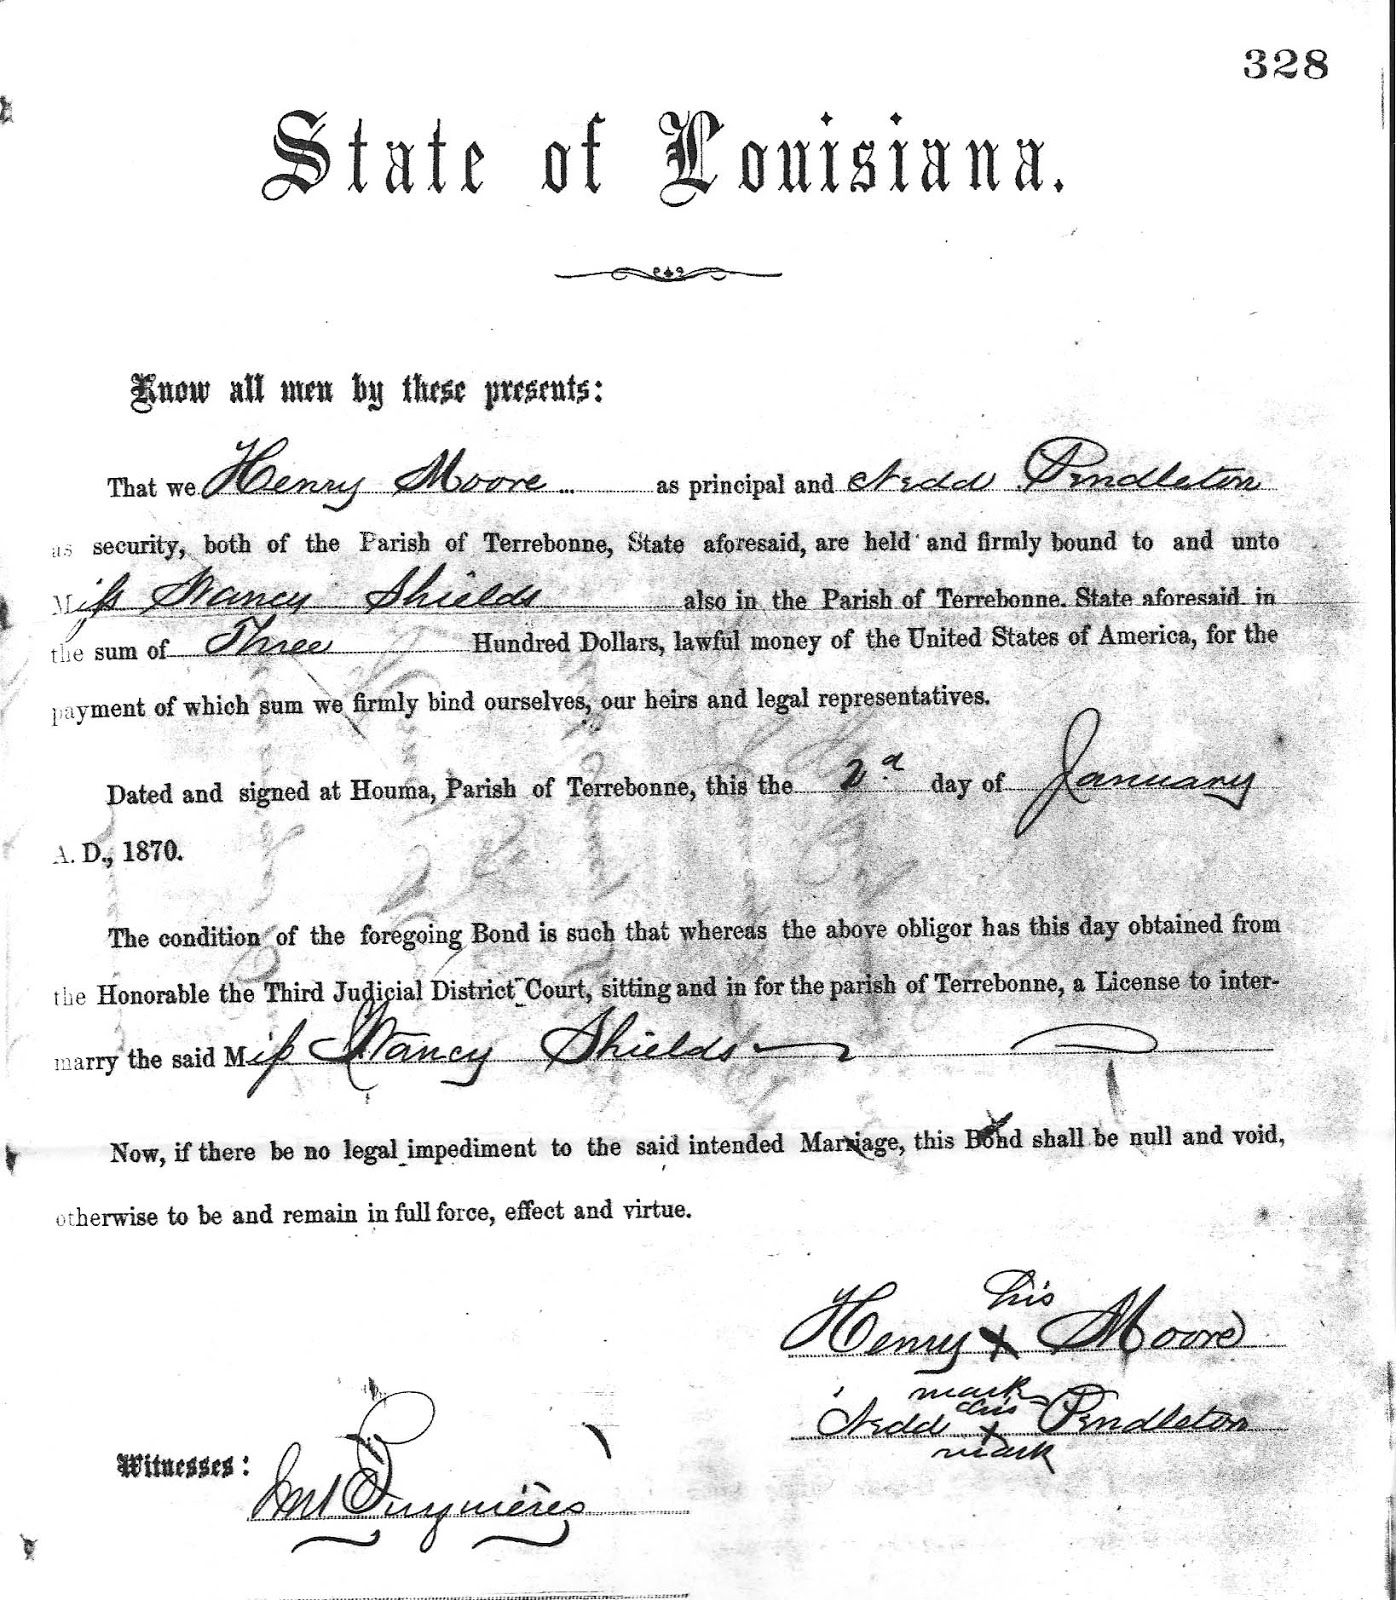 328
State of Louisiana.
Know all men by these presents:
That we Henry Moore as principal and Nedd Pendleton
as security, both of the Parish of Terrebonne, State aforesaid, are held and firmly bound to and unto
Miss Nancy Shields also in the Parish of Terrebonne. State aforesaid in
the sum of Three Hundred Dollars, lawful money of the United States of America, for the
payment of which sum we firmly bind ourselves, our heirs and legal representatives.
Dated and signed at Houma, Parish of Terrebonne, this the 2d day of January
A. D., 1870.
The condition of the foregoing Bond is such that whereas the above obligor has this day obtained from
the Honorable the Third Judicial District Court, sitting and in for the parish of Terrebonne, a License to inter-
marry the said Miss Nancy Shields
Now, if there be no legal impediment to the said intended Marriage, this Bond shall be null and void,
otherwise to be and remain in full force, effect and virtue.
his
Henry X Moore
mark
his
Nedd X Pendleton
mark
Witnesses: